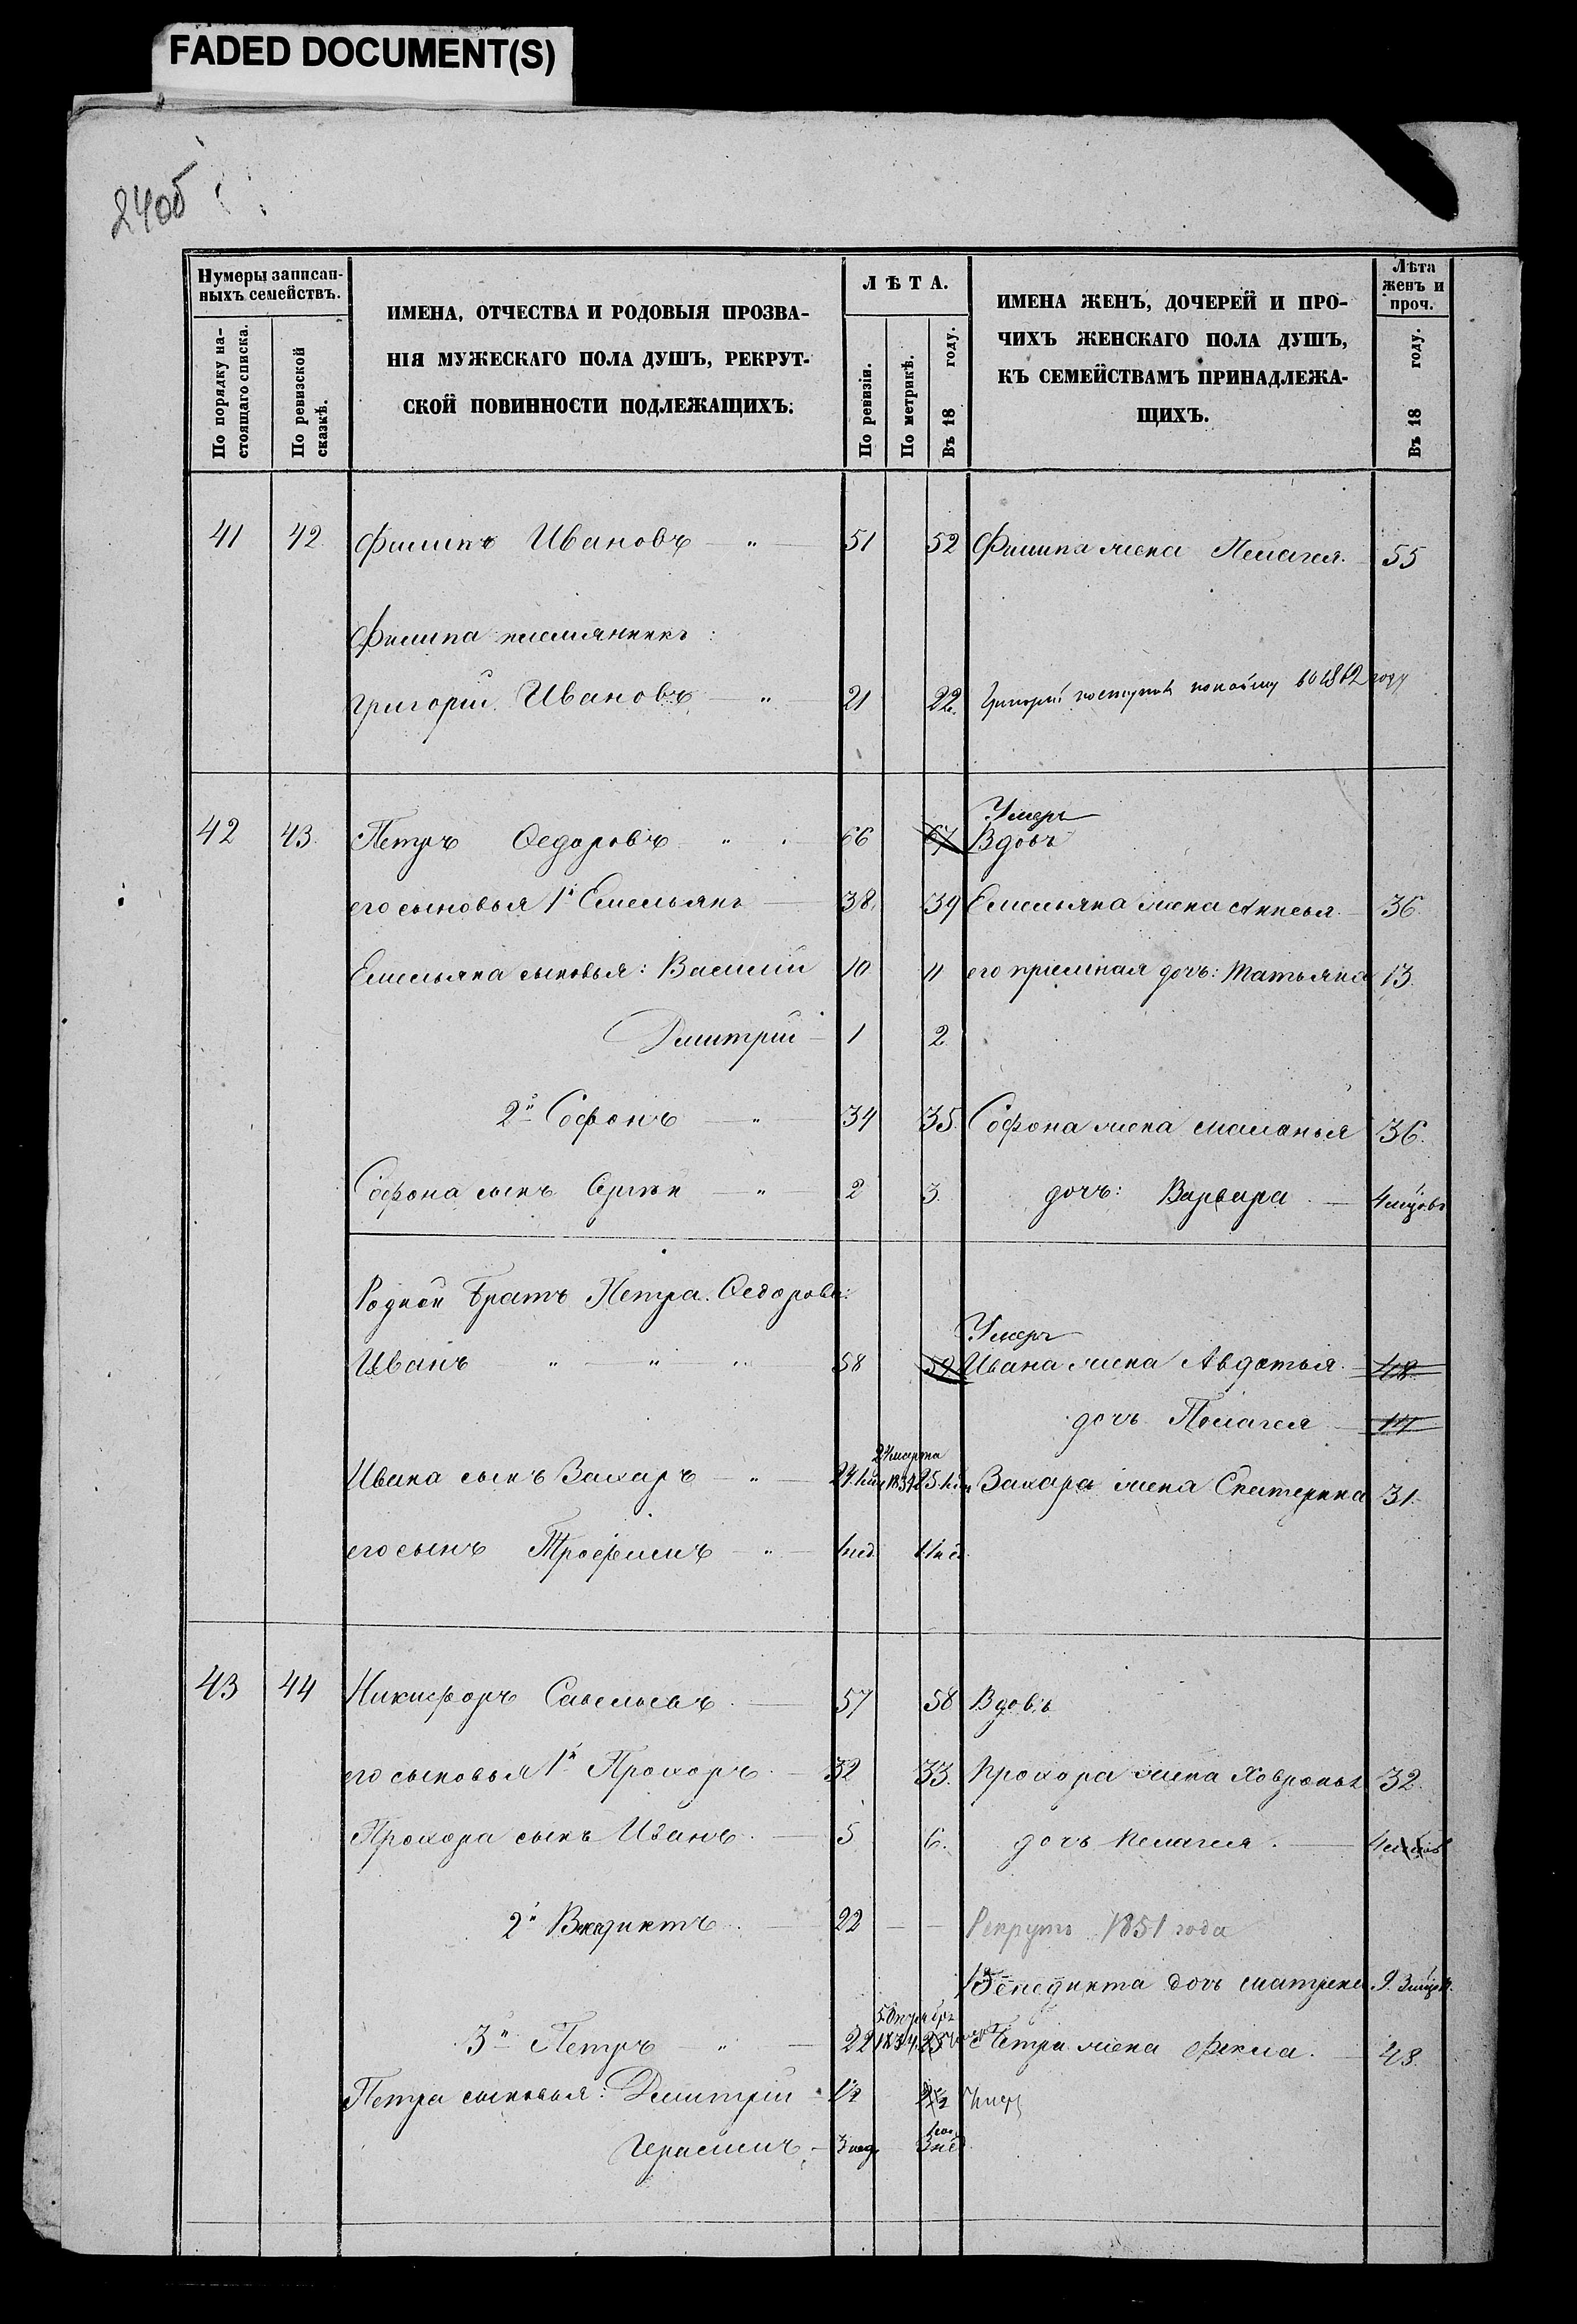 FADED DOCUMENT(S)
24об
Нумеры записан-
ныхъ семействъ.
По порядку на-
стоящаго списка.
По ревизской
сказкѣ.
ИМЕНА, ОТЧЕСТВА И РОДОВЫЯ ПРОЗВА-
НІЯ МУЖЕСКАГО ПОЛА ДУШЪ, РЕКРУТ-
СКОЙ ПОВИННОСТИ ПОДЛЕЖАЩИХЪ.
ЛѢТА.
По ревизіи.
По метрикѣ.
Въ 18 году.
ИМЕНА ЖЕНЪ, ДОЧЕРЕЙ И ПРО-
ЧИХЪ ЖЕНСКАГО ПОЛА ДУШЪ,
КЪ СЕМЕЙСТВАМЪ ПРИНАДЛЕЖА-
ЩИХЪ.
Лѣта
женъ и
проч.
Въ 18 году.
41 42 Филипъ Ивановъ — " — 51 52 Филипа жена Пелагея. 55
Филипа племянникъ:
Григорій Ивановъ — " 21 22. Григорій поступилъ по найму въ 1862 году
Умеръ
42 43. Петръ Ѳедоровъ " 66 67 Вдовъ
его сыновья 1й Емельянъ — 38. 39 Емельяна жена Анисья. — 36.
Емельяна сыновья: Василій 10 11 его пріемная дочь: Татьяна 13.
Дмитрій — 1 2
2й Софонъ — " — 34 35. Софона жена Маланья 36.
Софона сынъ Сергѣй — " — 2 3. дочь: Варвара. — 4 мѣсяцовъ
Родной братъ Петра Ѳедорова:
Умеръ
Иванъ " — " " 58 59 Ивана жена Авдотья. — 48
дочь Пелагея — 17
24 марта
Ивана сынъ Захаръ — " — 24 1832 25 Захара жена Екатерина 31.
его сынъ Трофимъ — " — 1 нед. 1 нед.
43 44 Никифоръ Савельевъ. — 57 58 Вдовъ
его сыновья 1й Прохоръ. — 32 33. Прохора жена Ховронья 32.
Прохора сынъ Иванъ. — 5 6. дочь Пелагея. — 4
2й Венедиктъ. — 22 — — Рекрутъ 1851 года
Венедикта дочь Матрена
3й Петръ — " — 22 1834 23 Петра жена Фекла. — 48.
Петра сыновья: Дмитрій 1½ 2½ Умеръ
Герасимъ. — 3 нед. 3 нед